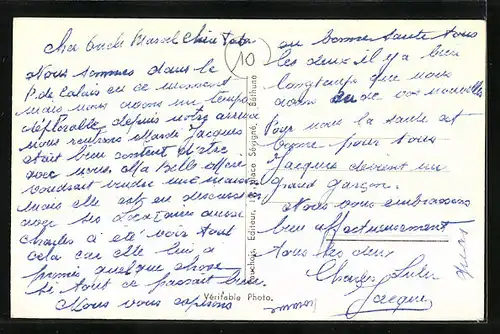 Cher Oncle Marcel Chère Tata
Nous sommes dans le
P. de Calais en ce moment
mais nous avons un temps
déplorable depuis notre arrivée
nous rentrons Mardi Jacques
était bien content d'être
avec nous. Ma Belle Mère
voudrait vendre une maison
mais elle est en
avec les locataires aussi
Charles a été voir tout
cela car elle lui a
promis quelque chose
si tout ce passait bien.
Nous vous espérons
en bonne santé tous
les deux il y a bien
longtemps que nous
avons eu de vos nouvelles
Pour nous la santé est
bonne pour tous
Jacques devient un
grand garçon.
Nous vous embrassons
bien affectueusement
tous les deux
Charles
Jacques
10
Editeur, Place Sévigné, Béthune
Véritable Photo.